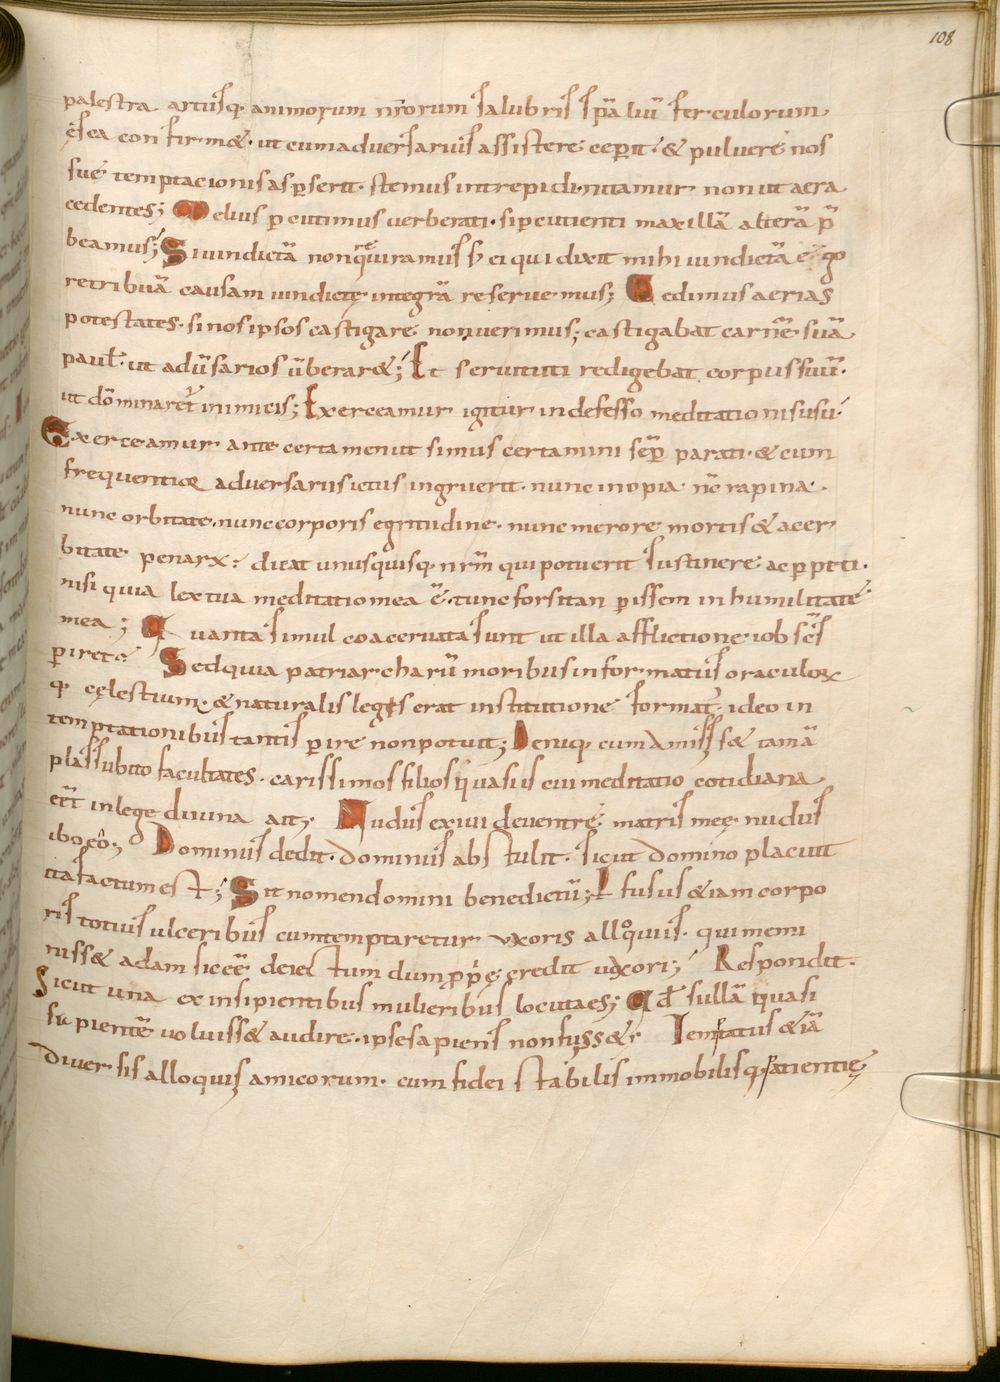 108
palestra artusq. animorum nrōrum salubris spāliū ferculorum
ęsca confirm&. ut cum adversarius assistere ceperit. & pulvere nos
suę temptacionis asperserit. stemus intrepidi. nitamur non ut aera
cedentes; Melius percutimus verberati. si percutienti maxillā alterā p̄
beamus; Si vindictā non quęramus s; ei qui dixit mihi vindictā ē ego
retribuā causam vindictę integrā reservemus; Cedimus aerias
potestates. si nos ipsos castigare noverimus; castigabat carnē suā
paul'. ut adūsarios ūberar&; Et servituti redigebat corpus suū.
ut dōminaret' inimicis; Exerceamur igitur indefesso meditationis usu.
Exerceamur ante certamen ut simus certamini sēp parati. & cum
frequentior adversarii sictus ingruerit. nunc inopia nc̄ rapina.
nunc orbitate. nunc corporis egritudine. nunc merore mortis & acer
bitate penarx. dicat unusquisq. nrm̄ qui potuerit sustinere ac perpeti.
nisi quia lex tua meditatio mea ē. tunc forsitan perissem in humilitate
mea; Quanta simul coacervata sunt ut illa afflictione iob scs̄
periret? Sed quia patriarcharū moribus informatus oraculorx
q. cęlestium. & naturalis legis erat institutione format'. ideo in
temptationibus tantis perire non potuit; Deniq. cum amisiss& tamā
plas subito facultates. carissimos filios quasi is cui meditatio cotidiana
eēt in lege divina ait; Nudus exivi de ventre matris meę nudus
ibo eo; Dominus dedit. dominus abstulit. sicut domino placuit
ita factum est; Sit nomen domini benedictū; Effusus &iam corpo
ris totius ulceribus cum temptaretur uxoris alloquiis. qui memi
niss& adam sic ēe deiectum dum pprię credit uxori; Respondit.
Sicut una ex insipientibus mulieribus locuta es; Ad sullā quasi
sapientē voluiss& audire. ipse sapiens non fuiss&r Temptatus &iā
diversis alloquiis amicorum. cum fidei stabilis immobilisq. patientię